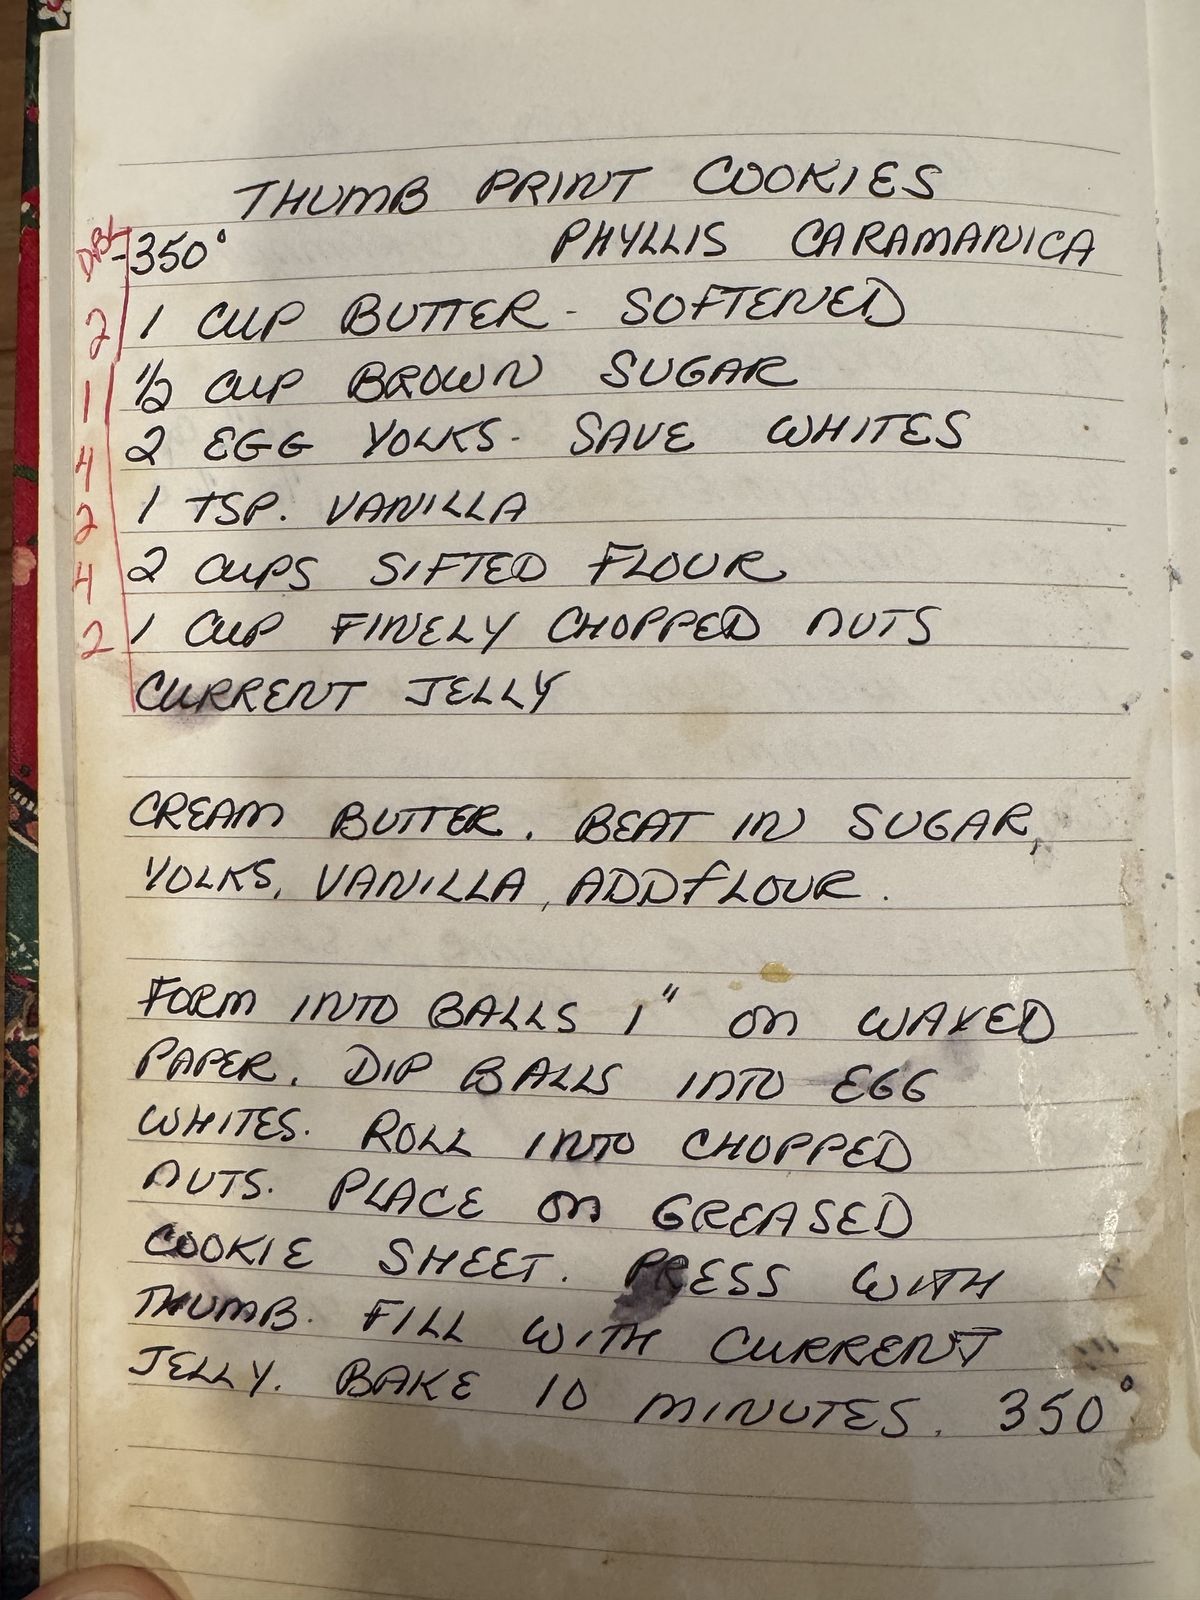 THUMB PRINT COOKIES
DBL -350° PHYLLIS CARAMANICA
2 1 CUP BUTTER - SOFTENED
1 1/2 CUP BROWN SUGAR
4 2 EGG YOLKS - SAVE WHITES
2 1 TSP. VANILLA
4 2 CUPS SIFTED FLOUR
2 1 CUP FINELY CHOPPED NUTS
CURRENT JELLY
CREAM BUTTER. BEAT IN SUGAR,
YOLKS, VANILLA, ADD FLOUR.
FORM INTO BALLS 1" ON WAXED
PAPER. DIP BALLS INTO EGG
WHITES. ROLL INTO CHOPPED
NUTS. PLACE ON GREASED
COOKIE SHEET. PRESS WITH
THUMB. FILL WITH CURRENT
JELLY. BAKE 10 MINUTES. 350°